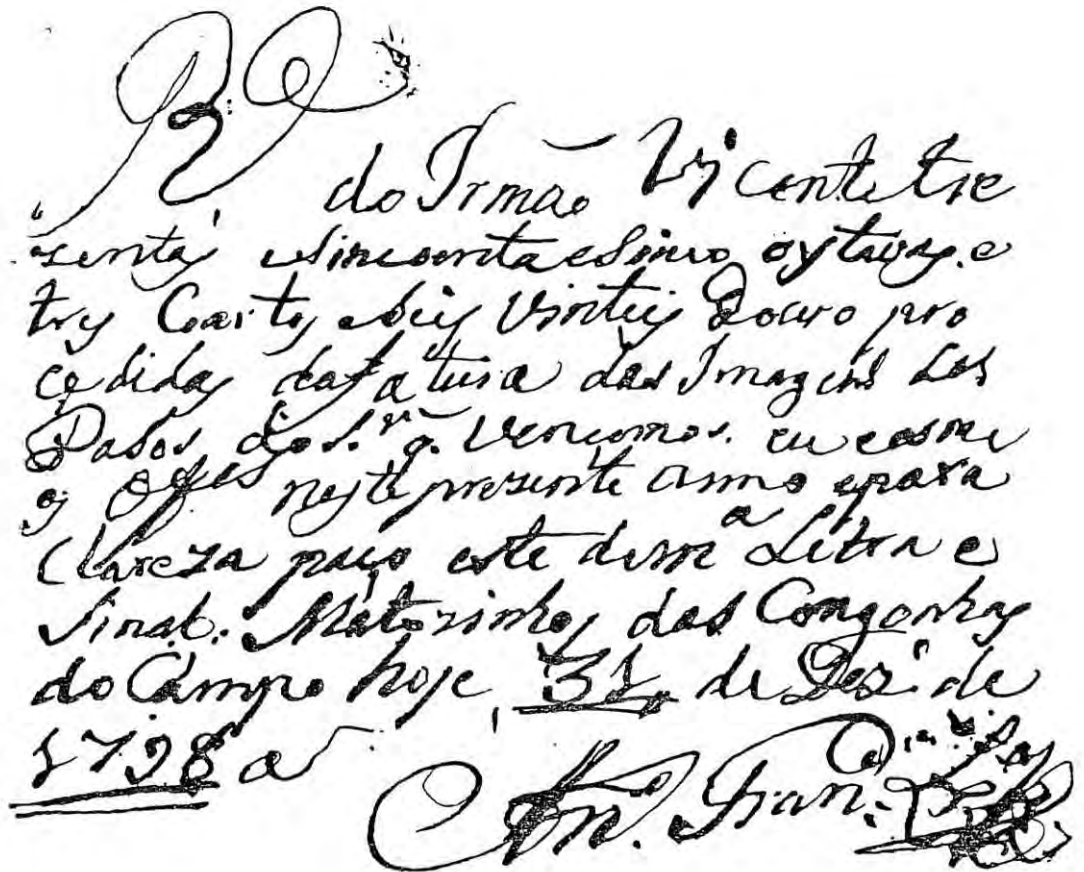 R.
do Irmão Vicente tre
zentas e sincoenta e sinco oytavas e
tres Coartos e seis Vinteis Douro pro
cedidas da fatura das Imagens dos
Pasos do S.r q. Vencemos eu e os meu
os Ofes neste presente anno e para
Clareza paso este de m.a Letra e
Sinal. Matozinhos das Congonhas
do Campo hoje 31 de Dez.o de
1798 a
An.to Fran.co Lx.a